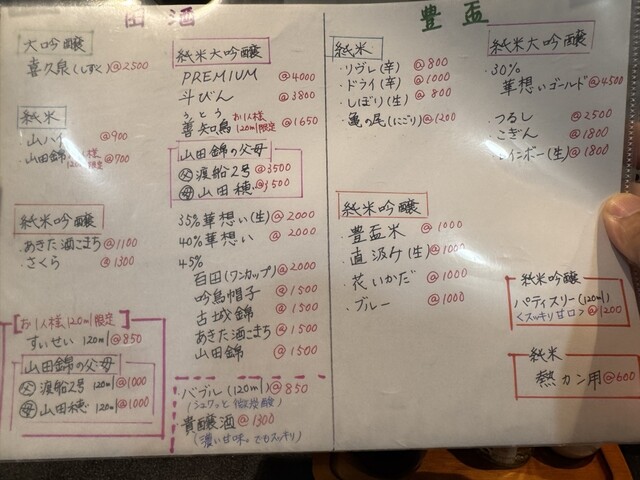 田酒
大吟醸
喜久泉(しずく)@2500
純米
山ハイ @900
山田錦 お1人様 120ml限定 @700
純米吟醸
・あきた酒こまち@1100
・さくら @1300
お1人様,120ml限定
すいせい 120ml@850
山田錦の父母
父 渡船2号 120ml@1000
母 山田穂 120ml@1000
純米大吟醸
PREMIUM @4000
斗びん @3800
うとう
善知鳥 お1人様 120ml限定 @1650
山田錦の父母
父 渡船2号 @3500
母 山田穂 @3500
35%華想い(生)@2000
40%華想い @2000
45%
百田(ワンカップ)@2000
吟烏帽子 @1500
古城錦 @1500
あきた酒こまち@1500
山田錦 @1500
バブル(120ml)@850
(シュワッと微炭酸)
貴醸酒@1300
(濃い甘味。でもスッキリ)
豊盃
純米
・リヴレ(辛) @800
・ドライ(辛) @1000
・しぼり(生) @800
・亀の尾(にごり)@1200
純米吟醸
・豊盃米 @1000
・直汲み(生)@1000
・花いかだ @1000
・ブルー @1000
純米大吟醸
・30%
華想いゴールド@4500
・つるし @2500
・こぎん @1800
レインボー(生)@1800
純米吟醸
パティスリー(120ml)
<スッキリ甘口>@1200
純米
熱カン用@600